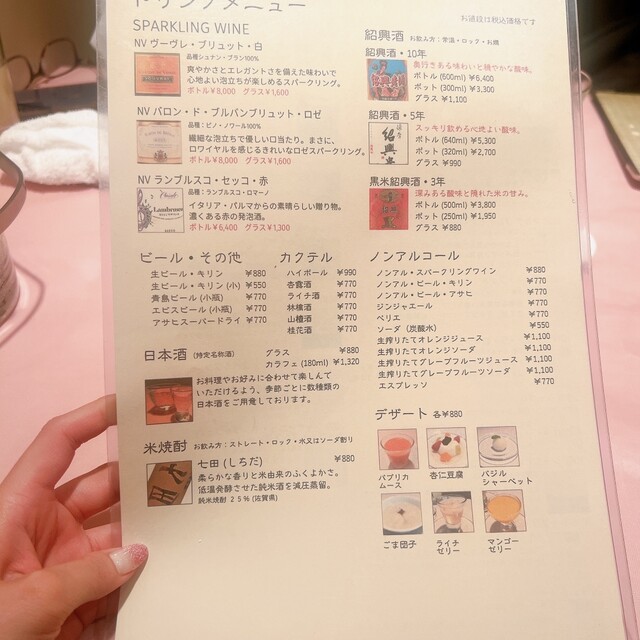 ドリンクメニュー
お値段は税込価格です
SPARKLING WINE
NV ヴーヴレ・ブリュット・白
品種:シュナン・ブラン100%
爽やかさとエレガントさを備えた味わいで
心地よい泡立ちが楽しめるスパークリング。
ボトル¥8,000 グラス¥1,600
NV バロン・ド・ブルバンブリュット・ロゼ
品種:ピノ・ノワール100%
繊細な泡立ちで優しい口当たり。まさに、
ロワイヤルを感じるきれいなロゼスパークリング。
ボトル¥8,000 グラス¥1,600
NV ランブルスコ・セッコ・赤
品種:ランブルスコ・ロマーノ
イタリア・パルマからの素晴らしい贈り物。
濃くある赤の発泡酒。
ボトル¥6,400 グラス¥1,300
紹興酒 お飲み方:常温・ロック・お燗
紹興酒・10年
奥行きある味わいと穏やかな酸味。
ボトル (600ml) ¥6,400
ポット (300ml) ¥3,300
グラス ¥1,100
紹興酒・5年
スッキリ飲めるべ地よい酸味。
ボトル (640ml) ¥5,300
ポット (320ml) ¥2,700
グラス ¥990
黒米紹興酒・3年
深みある酸味と隠れた米の甘み。
ボトル (500ml) ¥3,800
ポット (250ml) ¥1,950
グラス ¥880
ビール・その他
生ビール・キリン ¥880
生ビール・キリン (小) ¥550
青島ビール (小瓶) ¥770
エビスビール (小瓶) ¥770
アサヒスーパードライ ¥770
カクテル
ハイボール ¥990
杏露酒 ¥770
ライチ酒 ¥770
林檎酒 ¥770
山楂酒 ¥770
桂花酒 ¥770
ノンアルコール
ノンアル・スパークリングワイン ¥880
ノンアル・ビール・キリン ¥770
ノンアル・ビール・アサヒ ¥770
ジンジャエール ¥770
ペリエ ¥770
ソーダ (炭酸水) ¥550
生搾りたてオレンジジュース ¥1,100
生搾りたてオレンジソーダ ¥1,100
生搾りたてグレープフルーツジュース ¥1,100
生搾りたてグレープフルーツソーダ ¥1,100
エスプレッソ ¥770
日本酒 (特定名称酒)
グラス ¥880
カラフェ (180ml) ¥1,320
お料理やお好みに合わせて楽しんで
いただけるよう、季節ごとに数種類の
日本酒をご用意しております。
米焼酎 お飲み方:ストレート・ロック・水又はソーダ割り
七田 (しちだ) ¥880
柔らかな香りと米由来のふくよかさ。
低温発酵させた純米酒を減圧蒸留。
純米焼酎 25% (佐賀県)
デザート 各¥880
パプリカ
ムース
杏仁豆腐
バジル
シャーベット
ごま団子
ライチ
ゼリー
マンゴー
ゼリー